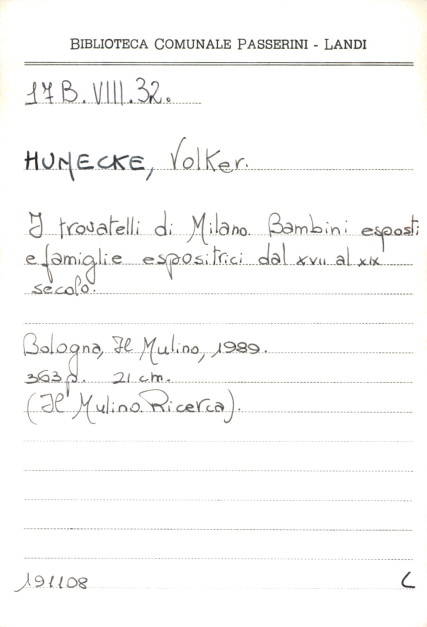 BIBLIOTECA COMUNALE PASSERINI - LANDI
17 B. VIII. 32.
HUNECKE, Volker.
I trovatelli di Milano. Bambini esposti
e famiglie espositrici dal XVII al XIX
secolo.
Bologna, Il Mulino, 1989.
363 p. 21 cm.
(Il Mulino. Ricerca).
191108 L